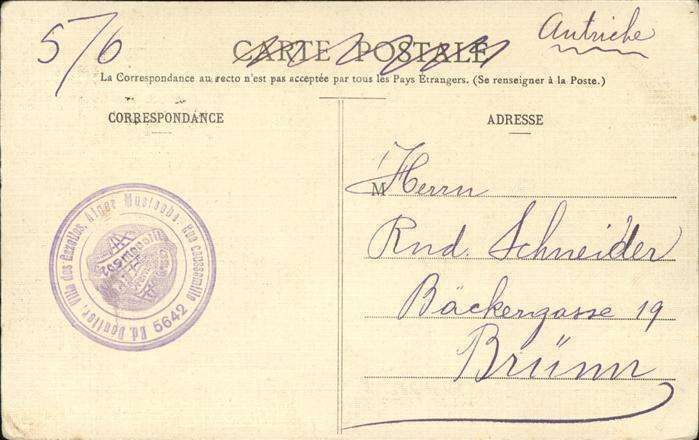 5/6
Autriche
CARTE POSTALE
La Correspondance au recto n'est pas acceptée par tous les Pays Étrangers. (Se renseigner à la Poste.)
CORRESPONDANCE
ADRESSE
M Herrn
Rud. Schneider
Bäckergasse 19
Brünn
Ed. Villa des Gazelles. Alger Mustapha. Rue 5642